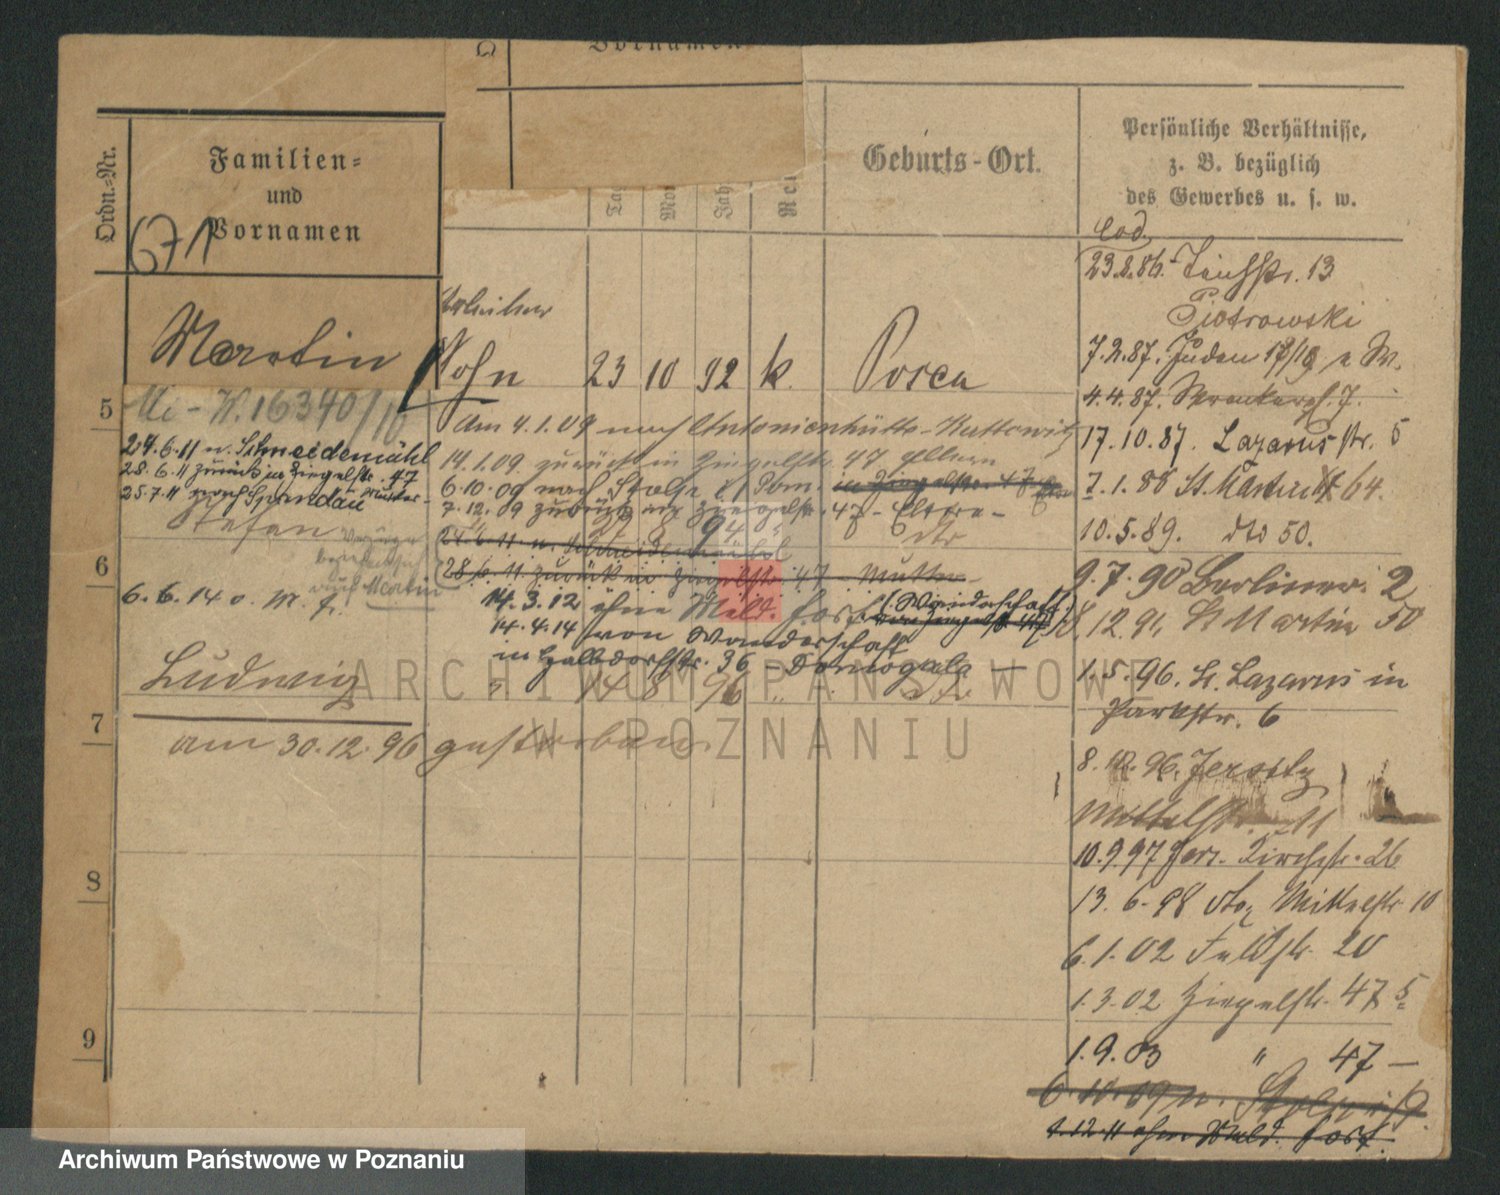 Vornamen
Ordn.-Nr.
Familien-
und
Vornamen
671
Geburts-Ort.
Persönliche Verhältnisse,
z. B. bezüglich
des Gewerbes u. s. w.
23.8.86. Teichstr. 13
Piotrowski
7.2.87. Juden 17/18
4.4.87. 7.
17.10.87. Lazarusstr. 5
7.1.88 St. Martin 64.
10.5.89. dto 50.
9.7.90 Berliner. 2
St Martin 50
1.5.96. St. Lazarus in
Parkstr. 6
8.10.96. Jersitz
Mittelstr. 11
10.9.97 Jers. Kirchstr. 26
13.6.98 dto, Mittelstr 10
6.1.02 Feldstr. 20
1.3.02 Ziegelstr. 47
1.9.03 " 47 —
1.12.11 ohne Meld. fort.
Martin
Sohn 23 10 92 k. Posen
5
Mi - W. 16340/16
24.6.11 n. Schneidemühl
28.6.11 zurück in Ziegelstr. 47
25.7.11 nach Spandau Mutter -
Am 4.1.09 nach Antonienhütte-Kattowitz
14.1.09 zurück in Ziegelstr. 47 Eltern
6.10.09 nach Stolp i/ Pom.
7.12.09 zurück in Ziegelstr. 47 - Eltern -
Stefan
94
dto
24.6.11 n. Schneidemühl
28.6.11 zurück in Ziegelstr. 47 - Mutter -
6
auf Martin
6.6.14
14.3.12 ohne Meld. fort
14.4.14 von Wanderschaft
in Halbdorfstr. 36 - Domogala —
Ludwig 14 8 96
7
am 30.12.96 gestorben
8
9
ARCHIWUM PAŃSTWOWE
W POZNANIU
Archiwum Państwowe w Poznaniu